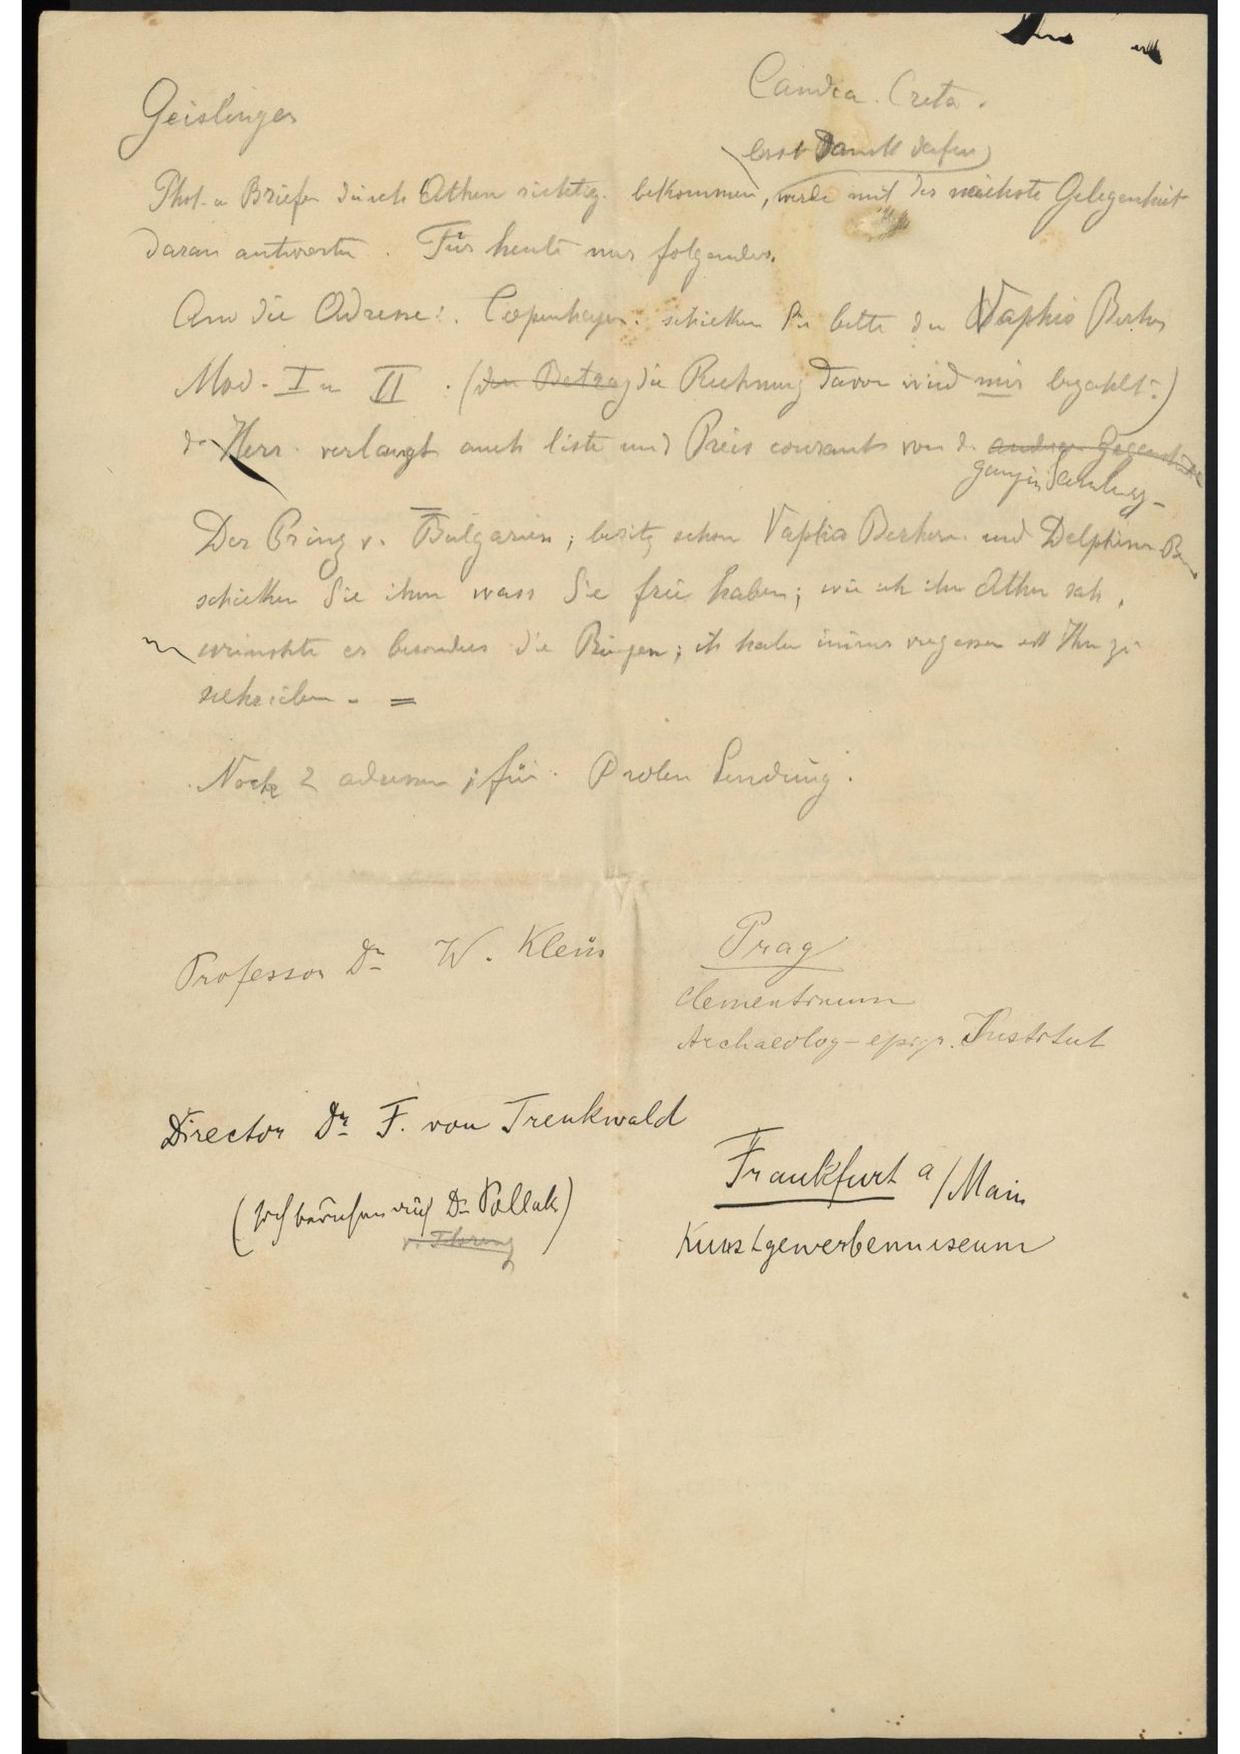 Candia. Creta.
Geislinger
erst Dank dafür
Phot. u Briefe durch Athen richtig. bekommen, werde mit der nächste Gelegenheit
daran antworten. Für heute nur folgendes.
An die Adresse: Copenhagen. schicken Sie bitte die Vaphio Becher
Mod. I u II. (den Betrag die Rechnung davon wird mir bezahlt.)
d. Herr verlangt auch liste und Preis courants von d. andere Gegenstände
ganzen Samlung
Der Prinz v. Bulgarien; besitz schon Vaphio Becher und Delphinen Be
schicken Sie ihm wass Sie frei haben; wie ich ihn Athen sah,
wünschte er besonders die Bügen; ich habe immer vergessen es Ihn zu
schreiben. =
Noch 2 adressen; für Proben Sendung.
Professor Dr W. Klein
Prag
Clementinum
Archaeolog-epigr. Institut
Director Dr F. von Trenkwald
Frankfurt a/Main
(sich berufen auf Dr Pollak)
Kunstgewerbemuseum